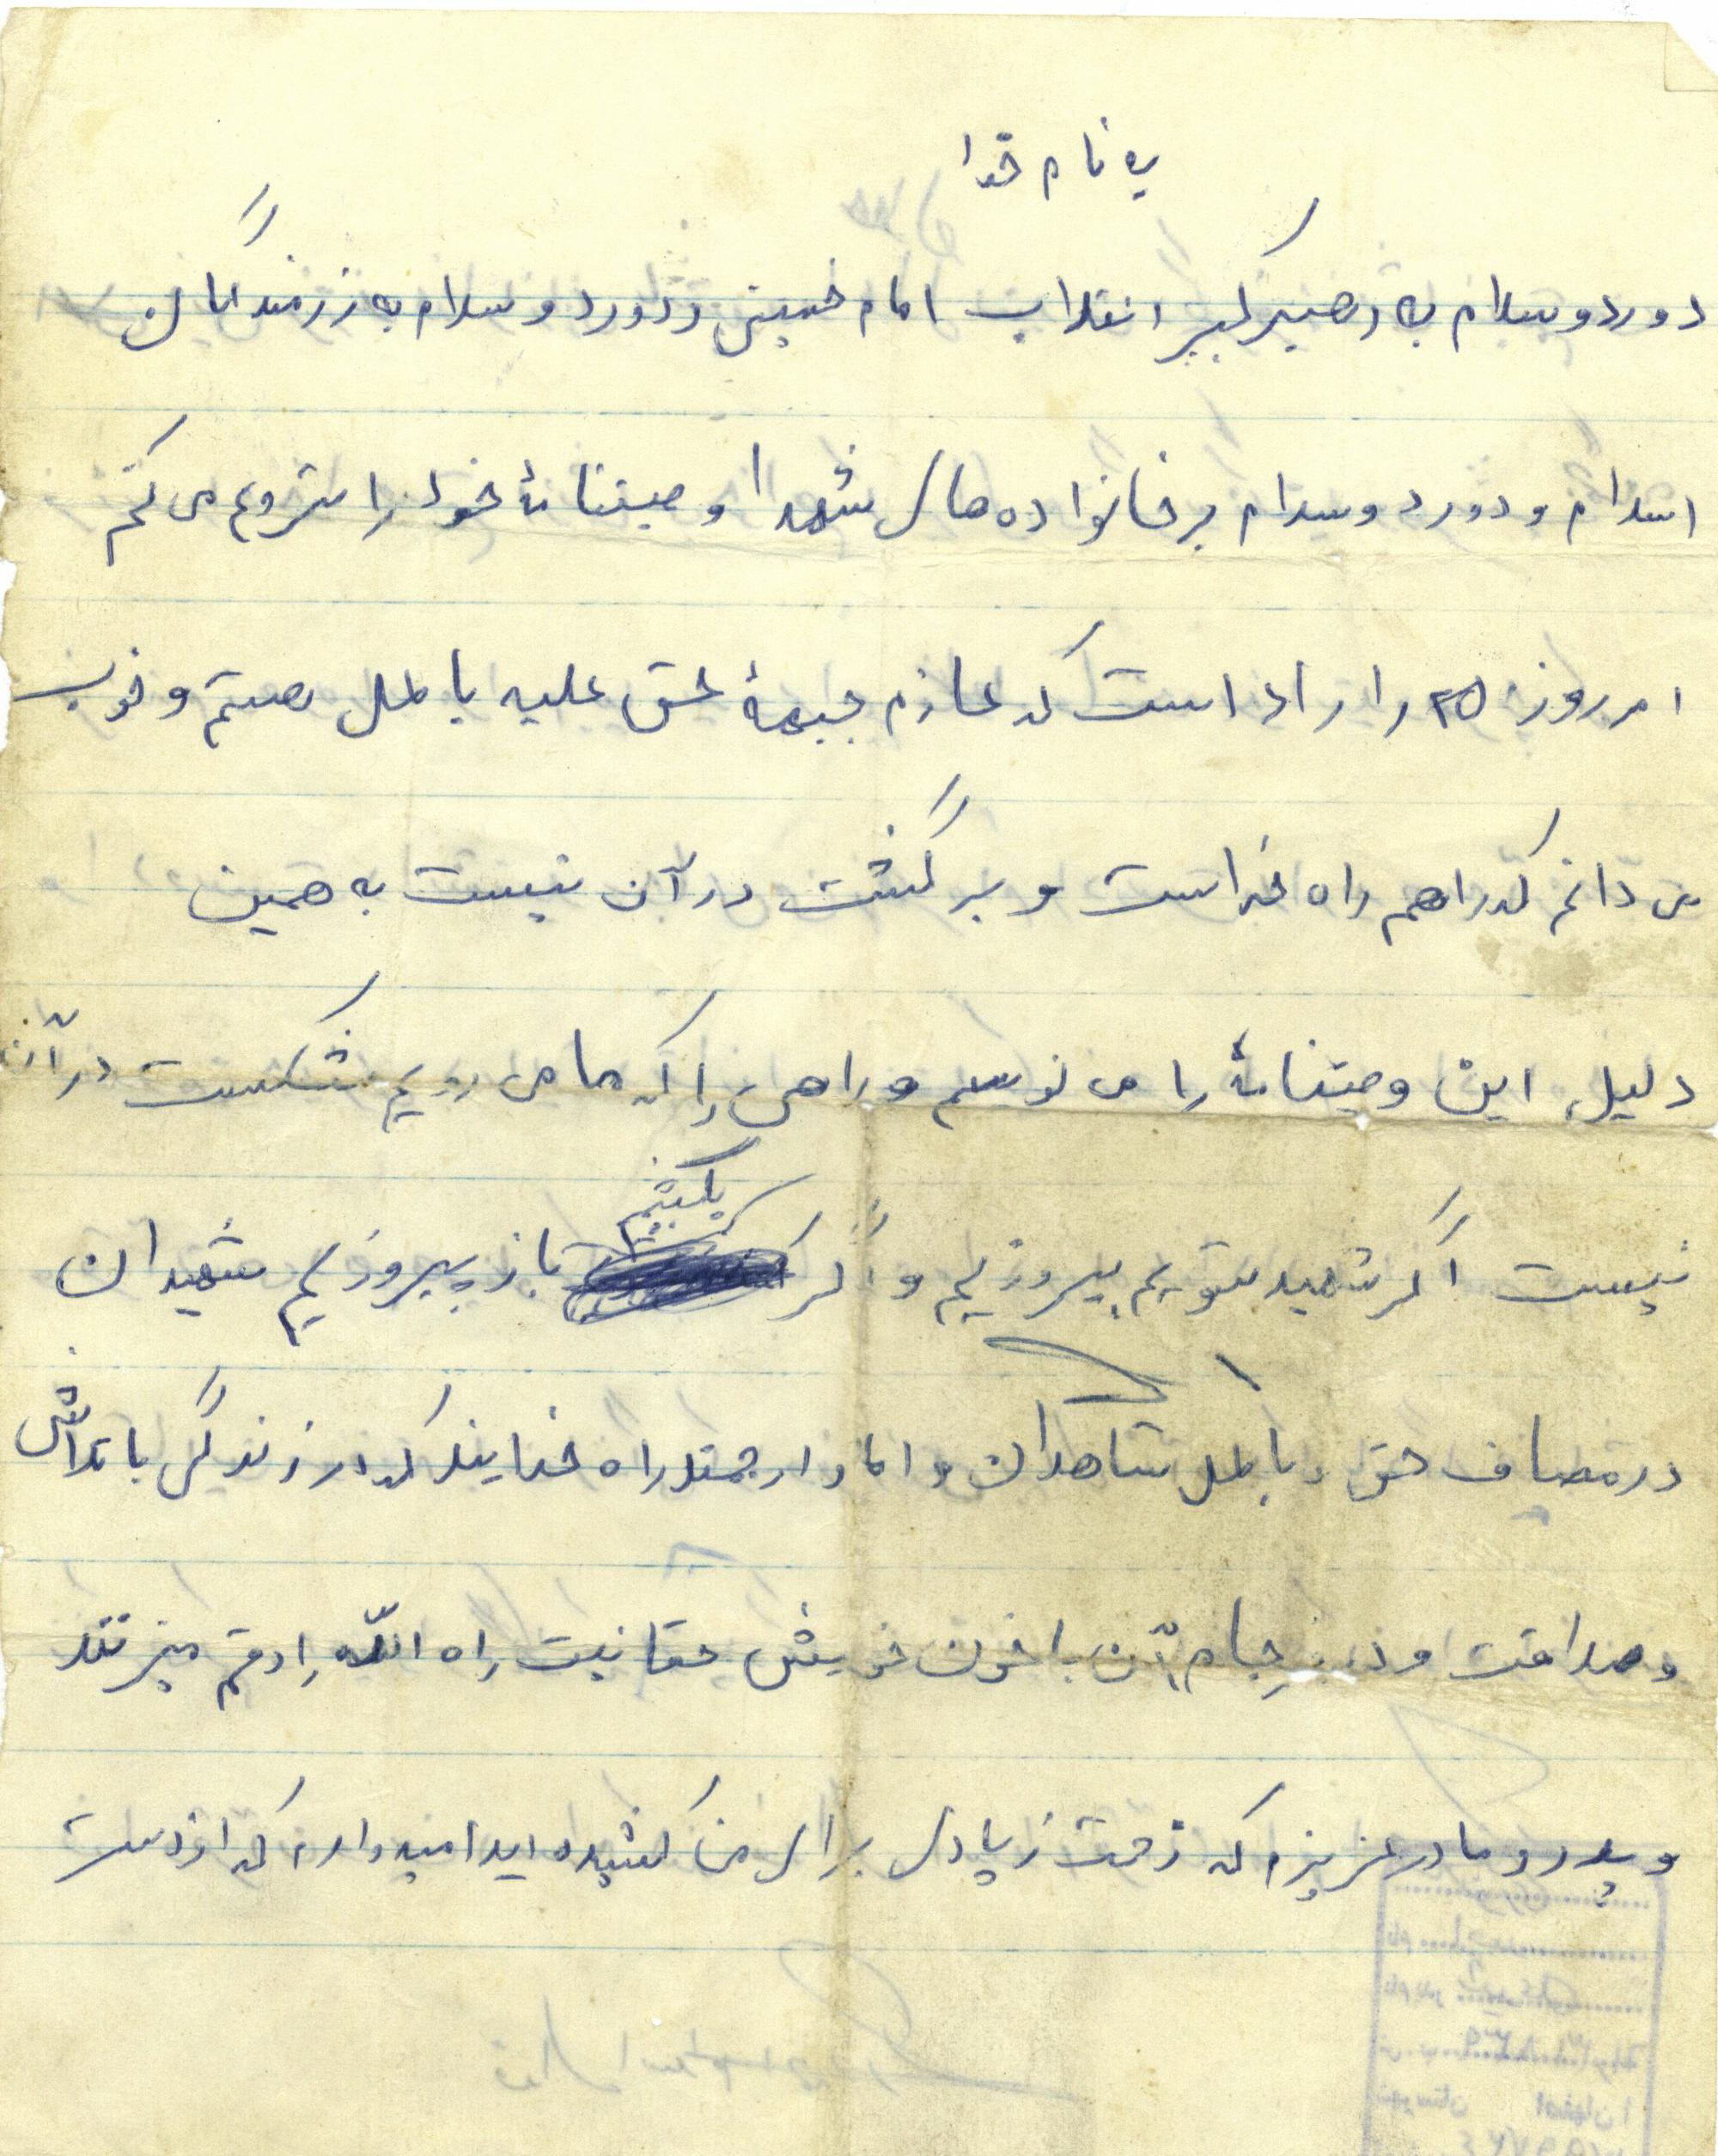 به نام خدا
درود و سلام به رهبر کبیر انقلاب امام خمینی و درود و سلام به رزمندگان
اسلام و درود و سلام بر خانواده های شهدا وصیتنامهٔ خود را شروع می کنم
امروز ۲۵ است که عازم جبههٔ حق علیه باطل هستم و خوب
می دانم که راهم راه خداست و برگشت در آن نیست به همین
دلیل این وصیتنامهٔ را می نویسم و راهی را که ما می رویم شکست در آن
نیست اگر شهید شویم پیروزیم و اگر بکشیم باز پیروزیم شهیدان
در مصاف حق و باطل شاهدان و راه خدایند که در زندگی با تلاش
و صداقت و در آن با خون خویش حقانیت راه الله را رقم میزنند
و پدر و مادر عزیزم که زحمت زیادی برای من کشیده اید امیدوارم که از دست